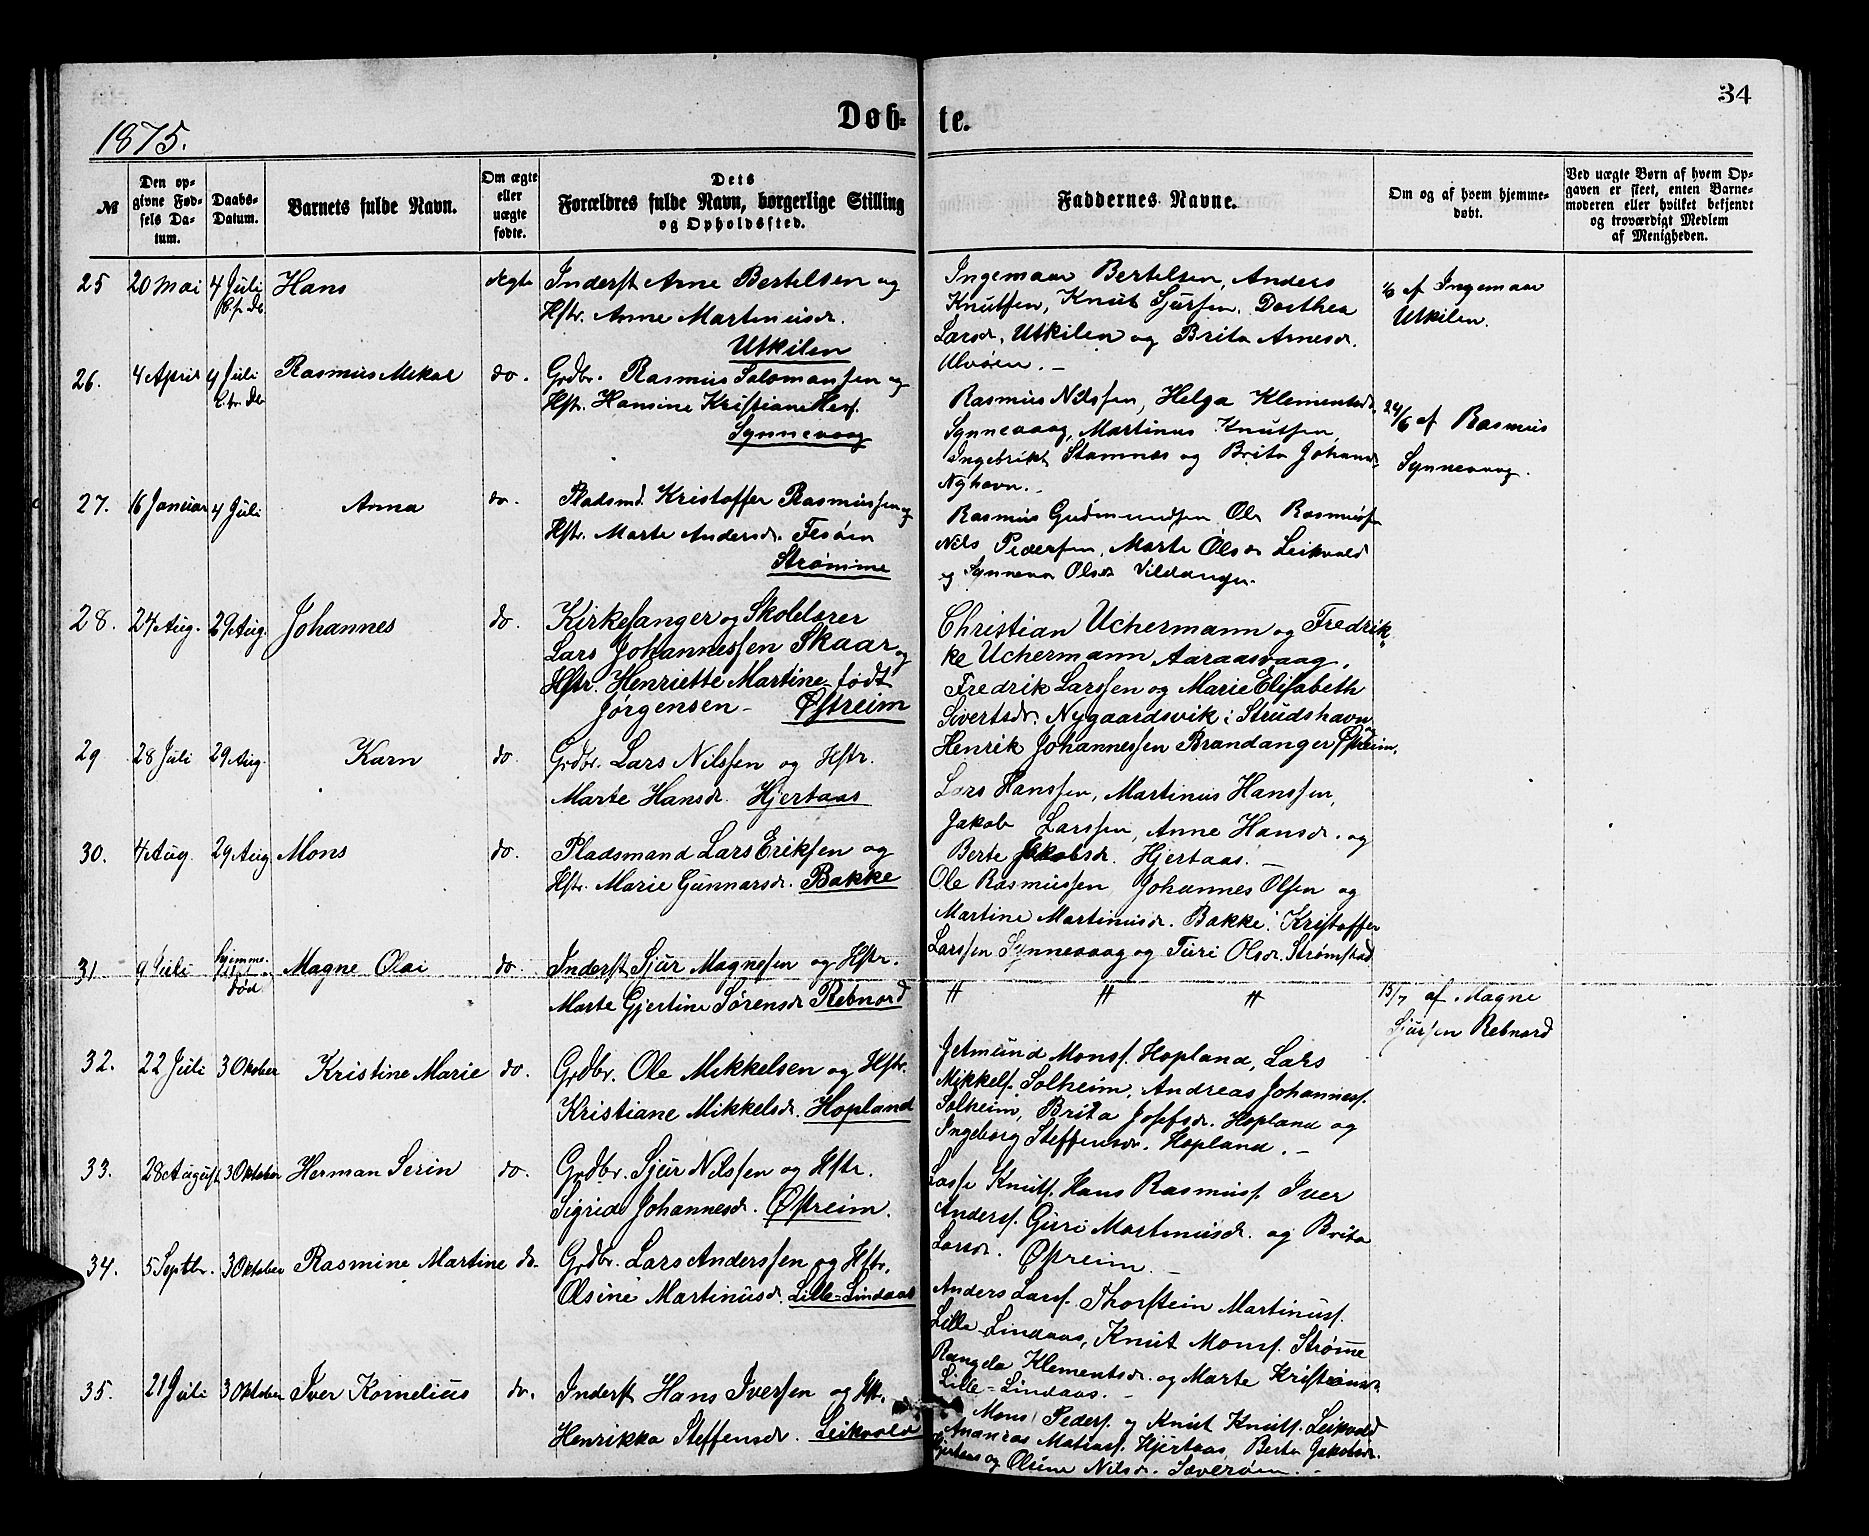 34
Døb- te.
1875.
№
Den op-
givne Fød-
sels Da-
tum.
Daabs-
Datum.
Barnets fulde Navn.
Om ægte
eller
uægte
fødte.
Dets
Forældres fulde Navn, borgerlige Stilling
og Opholdssted.
Faddernes Navne.
Om og af hvem hjemme-
døbt.
Ved uægte Børn af hvem Op-
gaven er skeet, enten Barne-
moderen eller hvilket bekjendt
og troværdigt Medlem
af Menigheden.
25 20 Mai 4 Juli Hans ægte
Inderst Arne Bertelsen og
Hstr. Anne Martinusdr.
Utkilen
Ingemaar Bertelsen, Anders
Knutsen, Knut Sjursen, Dorthea
Larsdr. Utkilen og Brita Arnesdr.
Alvøen. –
af Ingemaar
Utkilen.
26. 4 April 4 Juli Rasmus Mikal do.
Grdbr. Rasmus Salomonsen og
Hstr. Hansine Kristiane
Synnevaag
Rasmus Nilssen, Helga Klementsdr.
Synnevaag, Martinus Knutsen
Ingebrikt Stamnes og Brita Johannsdr.
Nyhavn. –
24/6 af Rasmus
Synnevaag.
27. 16 Januar 4 Juli Anna do.
Pladsmd. Kristoffer Rasmussen og
Hstr. Marte Andersdr. Fesøen
Strømme
Rasmus Gudmundsen, Ole Rasmuss.
Nils Pedersen, Marte Olsdr. Leikvold
og Synneva Olsdr. Vildanger.
28. 24 Aug. 29 Aug. Johannes do.
Kirkesanger og Skolelærer
Lars Johannessen Skaar og
Hstr. Henriette Martine født
Jørgensen – Østreim
Christian Uchermann og Fredrik-
ke Uchermann Aaraasvaag,
Fredrik Larssen og Marie Elisabeth
Sivertsdr. Nygaardsvik i Strudshavn
Henrik Johannessen Brandanger Østreim.
29 28 Juli 29 Aug. Karn do
Grdbr. Lars Nilssen og Hstr.
Marte Hansdr. Hjertaas
Lars Hanssen, Martinus Hanssen,
Jakob Larssen, Anne Hansdr. og
Berte Jakobsdr. Hjertaas. –
30. 4 Aug. 29 Aug Mons do.
Pladsmand Lars Eriksen og
Hstr. Marie Gunnarsdr. Bakke
Ole Rasmussen Johannes Olsen og
Martine Martinusdr. Bakke, Kristoffer
Larssen Synnevaag og Turi Olsdr. Strømstad
31 9 Juli Hjemme-
døbt og
død Magne Olai do.
Inderst Sjur Magnesen og Hstr.
Marte Gjertine Sørensdr Rebnord
〃 〃 〃
15/7 af Magne
Sjursen Rebnord
32. 22 Juli 3 Oktober Kristine Marie do.
Grdbr. Ole Mikkelsen og Hstr.
Kristiane Mikkelsdr. Hopland
Jetmund Monss. Hopland, Lars
Mikkels. Solheim, Andreas Johanness.
Solheim, Brita Josefsdr. Hopland og
Ingeborg Steffensdr. Hopland. –
33. 28 August 3 Oktober Herman Serin do.
Grdbr. Sjur Nilssen og Hstr.
Sigrid Johannesdr. Østreim.
Lasse Knuts. Hans Rasmuss. Iver
Anderss. Guri Martinusdr. og Brita
Larsdr. Østreim. –
34. 5 Septbr. 3 Oktober Rasmine Martine do.
Grdbr. Lars Anderssen og Hstr.
Olsine Martinusdr. Lille-Lindaas
Anders Larss. Thorstein Martinuss.
Lille-Lindaas, Knut Monss. Strømme
Rangela Klementsdr. og Marte Kristiansdr.
Lille-Lindaas. –
35. 21 Juli 3 Oktober Iver Kornelius do.
Inderst Hans Iversen og Hstr.
Henrikka Steffensdr. Leikvold
Mons Peders. og Knut Knuts. Leikvold
Andreas Matiass. Hjertaas, Berta Jakobsdr.
Hjertaas og Olsine Nilsdr. Sæverøen. –